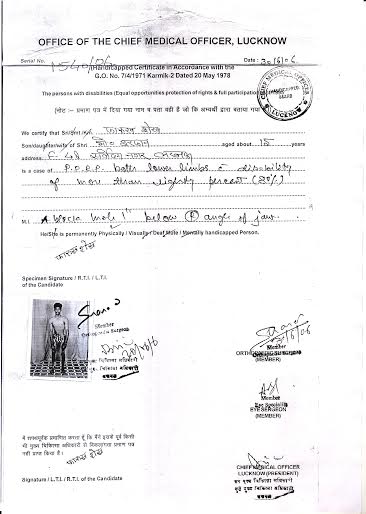 OFFICE OF THE CHIEF MEDICAL OFFICER, LUCKNOW
Serial No. 1540/06 Date : 30/6/06
(Handicapped Certificate in Accordance with the
G.O. No. 7/4/1971 Karmik-2 Dated 20 May 1978
CHIEF MEDICAL OFFICER HANDICAPPED BOARD LUCKNOW
The persons with disabilities (Equal opportunities protection of rights & full participation
(नोट :- प्रमाण पत्र में दिया गया नाम व पता वही है जो कि अभ्यर्थी द्वारा बताया गया
We certify that Sri/Smt./Km. फारूख शेख
Son/daughter/wife of Shri मो० aged about 15 years
address F. नगर लखनऊ
is a case of P.P.R.P. both lower limbs c disability
of more than eighty percent (80%)
M.I. A black mole 1" below (R) angle of jaw.
He/She is permanently Physically / Visually / Deaf Mute / Mentally handicapped Person.
फारूख शेख
Specimen Signature / R.T.I. / L.T.I.
of the Candidate
Member
Orthopaedic Surgeon
मुख्य चिकित्सा अधिकारी
लखनऊ
Member
ORTHOPAEDIC SURGEON
(MEMBER)
Member
Eye Specialist
EYE SERGEON
(MEMBER)
मैं शपथपूर्वक प्रमाणित करता हूँ कि मैंने इससे पूर्व किसी
भी मुख्य चिकित्सा अधिकारी से विकलांगता प्रमाण पत्र
नहीं प्राप्त किया है।
फारूख शेख
Signature / L.T.I. / R.T.I. of the Candidate
CHIEF MEDICAL OFFICER
LUCKNOW (PRESIDENT)
मुख्य चिकित्सा अधिकारी
लखनऊ